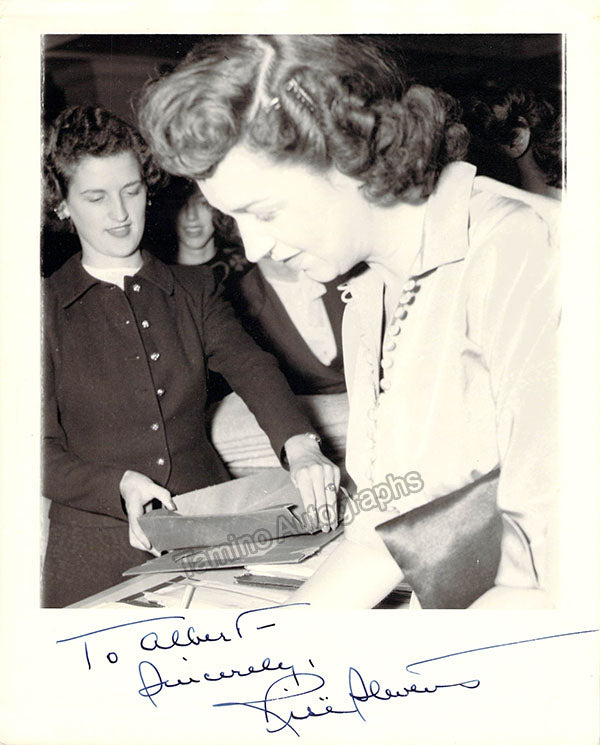 Tamino Autographs
To Albert-
Sincerely,
Risë Stevens